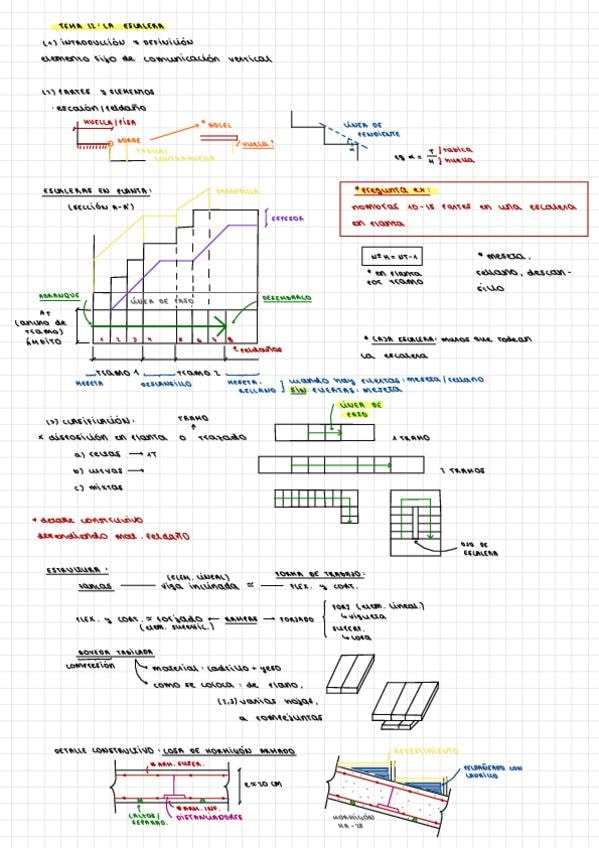 TEMA 12 - LA ESCALERA
(1) INTRODUCCIÓN Y DEFINICIÓN
elemento fijo de comunicación vertical
(2) PARTES Y ELEMENTOS
· escalón / peldaño
HUELLA / PISA
* BOCEL
BORDE
vuela!
TABICA /
CONTRAHUELLA
LÍNEA DE
PENDIENTE
tg α = T / H
tabica
huella
ESCALERAS EN PLANTA:
(SECCIÓN A-A')
BARANDILLA
ESPESOR
* Pregunta ex:
nombras 10-15 partes en una escalera
en planta
Nº H = NT-1
* en planta
por tramo
* meseta,
rellano, descan-
sillo
ARRANQUE
LÍNEA DE PASO
DESEMBARCO
AT
(ancho de
tramo)
ÁMBITO
1 2 3 4 5 6 7 8
peldaños
* CAJA ESCALERA: muros que rodean
la escalera
TRAMO 1
TRAMO 2
MESETA
DESCANSILLO
MESETA,
RELLANO
cuando hay puertas: meseta / rellano
SIN PUERTAS: meseta
(3) CLASIFICACIÓN:
TRAMO
* disposición en planta o trazado
LÍNEA DE
PASO
1 TRAMO
a) rectas → 1T
b) curvas →
c) mixtas
2 TRAMOS
* detalle constructivo
dependiendo mat. peldaño
OJO DE
ESCALERA
ESTRUCTURA:
FORMA DE TRABAJO:
zancas
(ELEM. LINEAL)
viga inclinada = FLEX. y CORT.
FLEX. y CORT. = forjado ← RAMPAS → FORJADO
(elem. superfic.)
FORJ (elem. lineal)
↳ vigueta
SUPERF.
↳ losa
BÓVEDA TABICADA
compresión
material: ladrillo + yeso
como se coloca: de plano,
(2,3) varias hojas,
a rompejuntas
DETALLE CONSTRUCTIVO: LOSA DE HORMIGÓN ARMADO
* ARM. SUPER.
e ≈ 20 cm
* ARM. INF.
CALZOS /
SEPARAD.
DISTANCIADORES
REVESTIMIENTO
PELDAÑEADO CON
LADRILLO
HORMIGÓN
HA-25